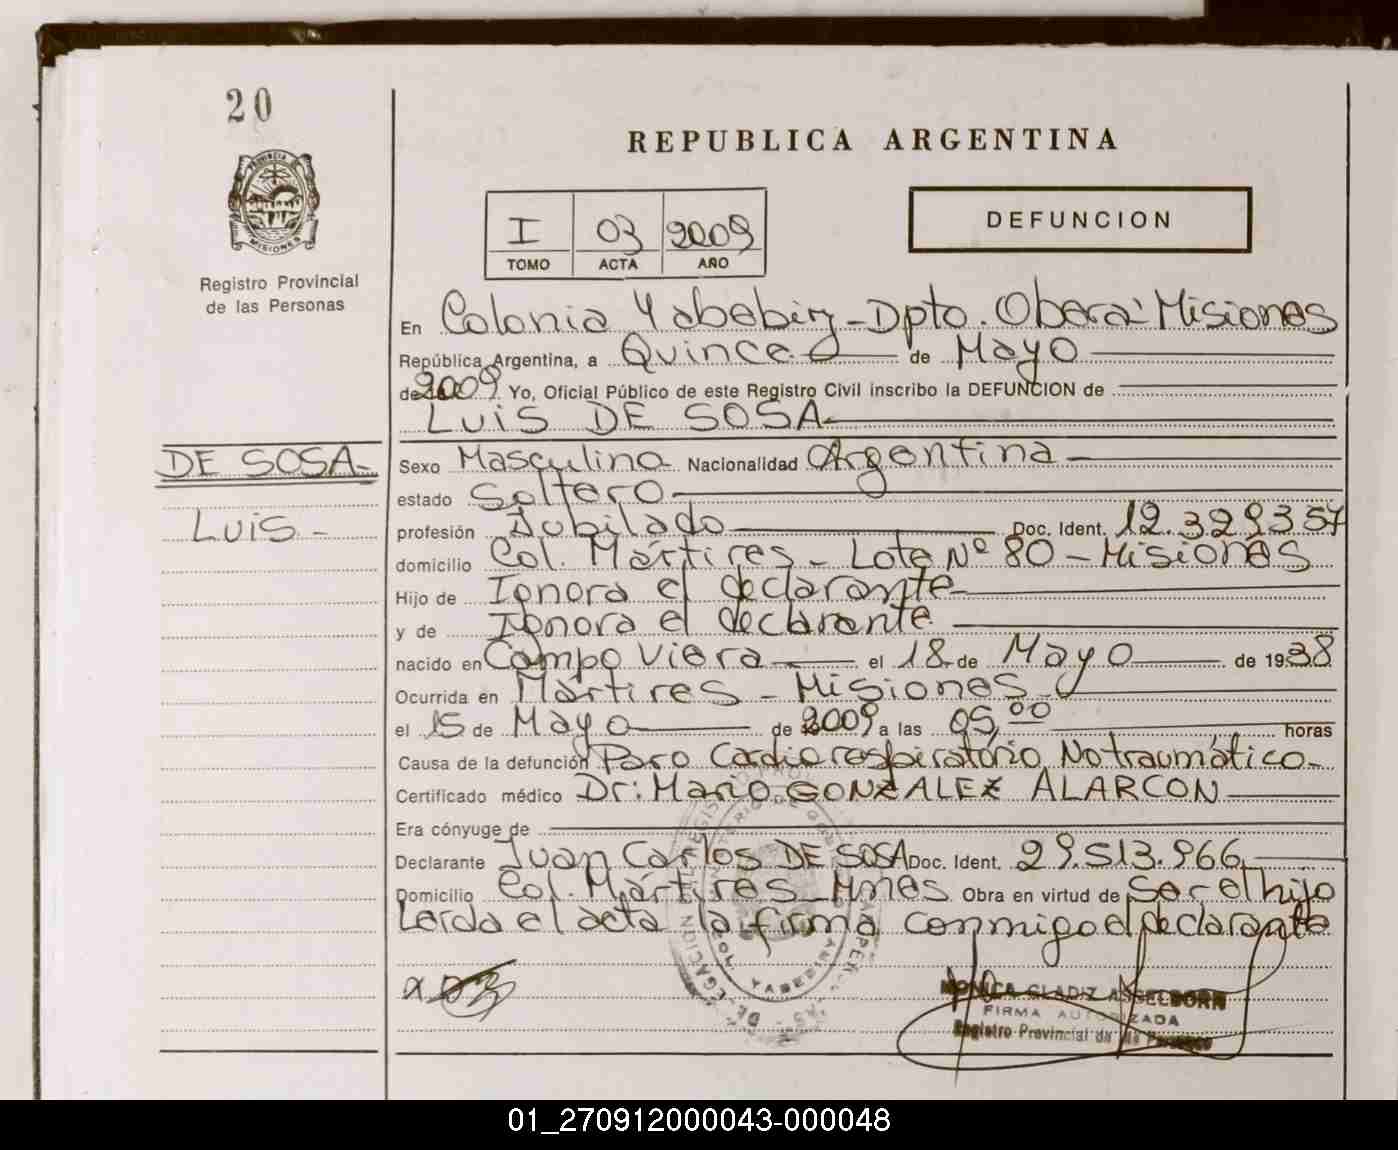 20
PROVINCIA DE
MISIONES
Registro Provincial
de las Personas
REPUBLICA ARGENTINA
I 03 2009
TOMO ACTA AÑO
DEFUNCION
En Colonia Yabebiry - Dpto. Oberá - Misiones
República Argentina, a Quince de Mayo
de 2009 Yo, Oficial Público de este Registro Civil inscribo la DEFUNCION de
LUIS DE SOSA
DE SOSA -
LUIS -
Sexo Masculino Nacionalidad Argentina
estado Soltero
profesión Jubilado Doc. Ident. 12.329.357
domicilio Col. Mártires - Lote Nº 80 - Misiones
Hijo de Ignora el declarante
y de Ignora el declarante
nacido en Campo Viera el 18 de Mayo de 1938
Ocurrida en Mártires - Misiones
el 15 de Mayo de 2009 a las 05,00 horas
Causa de la defunción Paro Cardiorespiratório No traumático -
Certificado médico Dr: Mario GONZALEZ ALARCON
Era cónyuge de
Declarante Juan Carlos DE SOSA Doc. Ident. 29.513.966
Domicilio Col. Mártires - Mnes Obra en virtud de Ser el hijo
Leída el acta la firma conmigo el declarante
MONICA GLADIZ ASSELBORN
FIRMA AUTORIZADA
Registro Provincial de las Personas
01_270912000043-000048